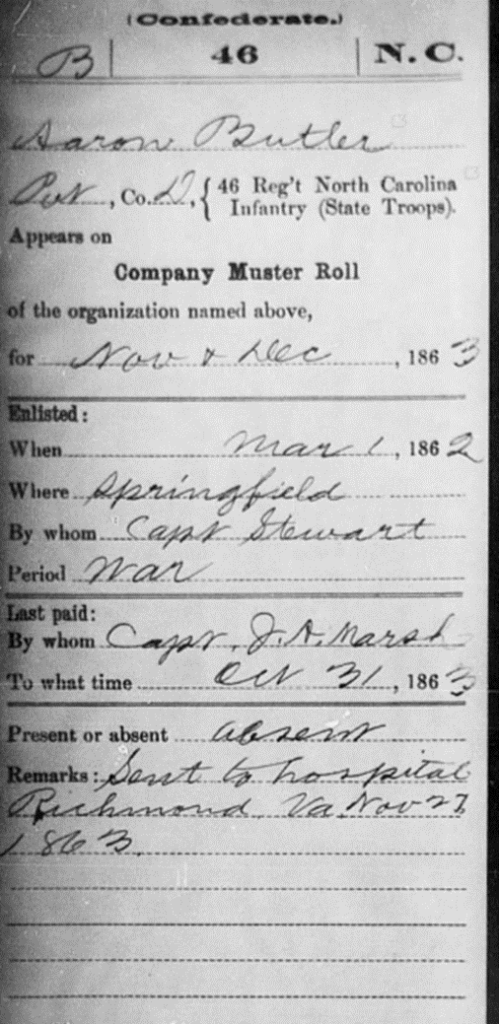 (Confederate.)
B | 46 | N. C.
Aaron Butler
Pvt, Co. D, { 46 Reg't North Carolina
Infantry (State Troops).
Appears on
Company Muster Roll
of the organization named above,
for Nov & Dec, 1863
Enlisted:
When Mar 1, 1862
Where Springfield
By whom Capt Stewart
Period War
Last paid:
By whom Capt. J. A. Marsh
To what time Oct 31, 1863
Present or absent absent
Remarks: Sent to hospital
Richmond, Va. Nov 27
1863.